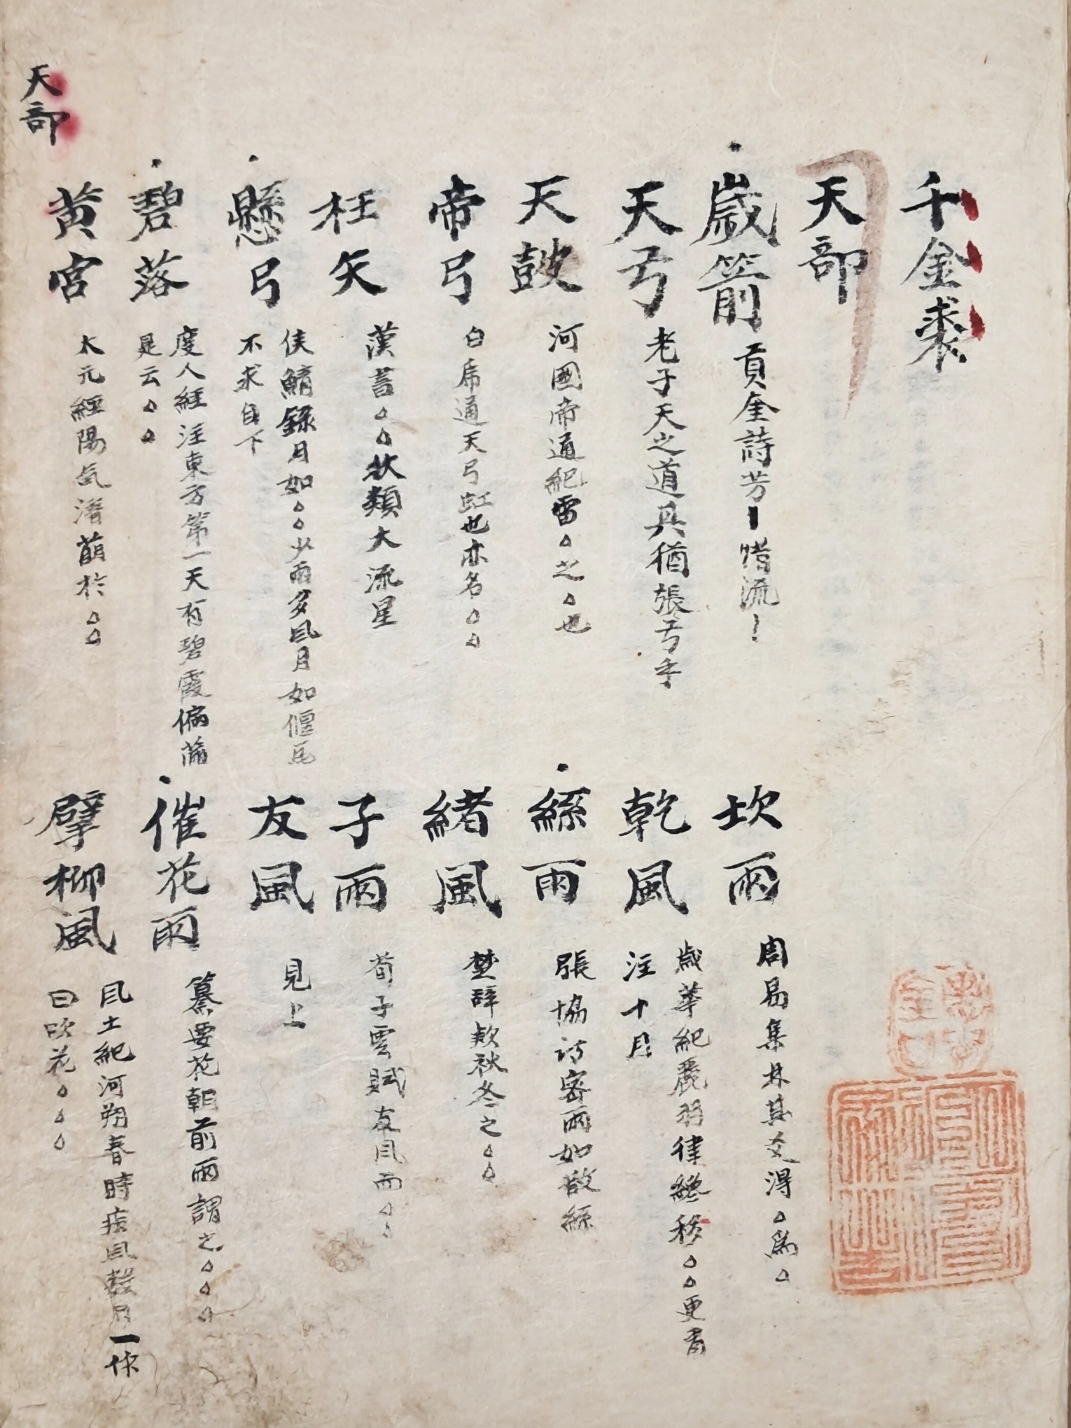 千金裘
天部
歲箭
貢奎詩芳丨惜流丨
天弓
老子天之道其猶張弓乎
天鼓
河圖帝通紀雷△之△也
帝弓
白虎通天弓虹也亦名△△
枉矢
漢書△△狀類大流星
懸弓
侯鯖錄月如△△少雨多風月如偃瓦
不求自下
碧落
度人經注東方第一天有碧霞徧滿
是云△△
黃宮
太元經陽气潛萌於△△
坎雨
周易集林其爻得△爲△
乾風
歲華紀麗羽律纔移△△更肅
注十月
絲雨
張協詩密雨如散絲
緒風
楚辭欸秋冬之△△
子雨
荀子雲賦友風而△△
友風
見上
催花雨
纂要花朝前雨謂之△△△
擘柳風
風土紀河朔春時疾風數月一作
曰吹花△△△
天部